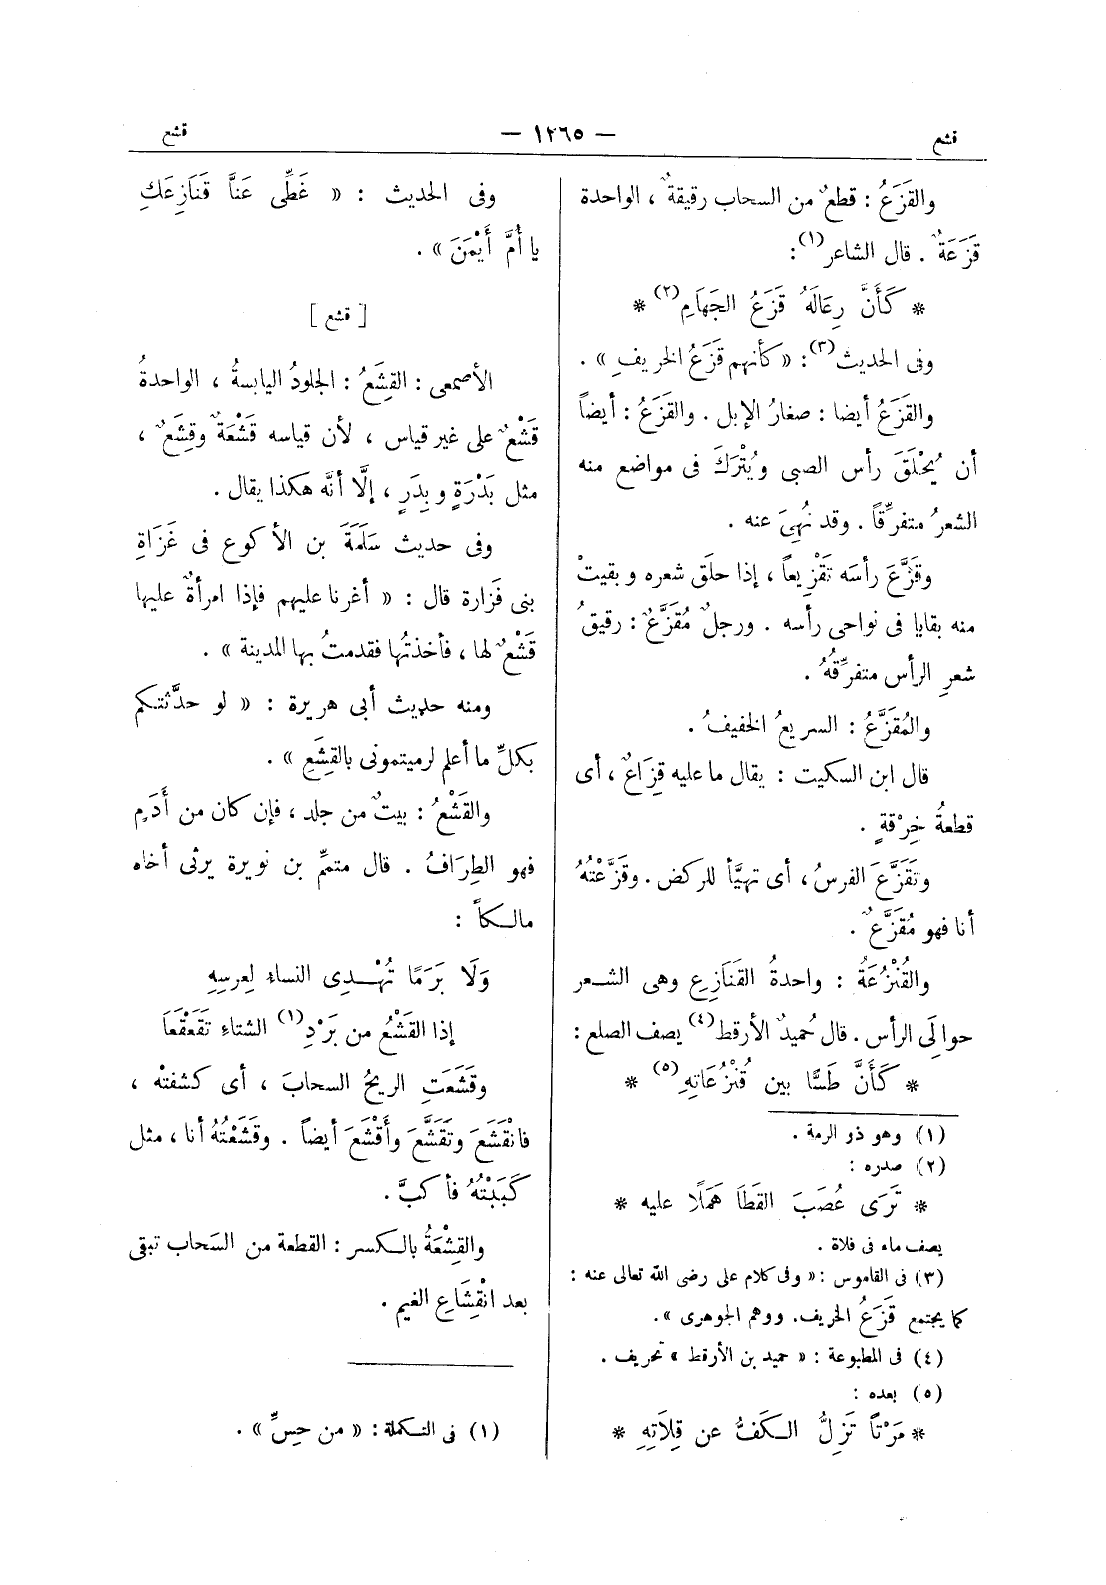 قشع
— ١٢٦٥ —
قشع
والقَزَعُ : قطعٌ من السحاب رقيقةٌ ، الواحدة
قَزَعَةٌ . قال الشاعر(١) :
* كَأَنَّ رِعَالَهُ قَزَعُ الجَهَامِ(٢) *
وفى الحديث(٣) : « كأنهم قَزَعُ الخريفِ » .
والقَزَعُ أيضا : صغارُ الإبل . والقَزَعُ : أيضاً
أن يُحْلَقَ رأس الصبى ويُتْرَكَ فى مواضع منه
الشعرُ متفرِّقاً . وقد نُهِىَ عنه .
وقَزَّعَ رأسَه تَقْزِيعاً ، إذا حلَق شعره وبقيتْ
منه بقايا فى نواحى رأسه . ورجلٌ مُقَزَّعٌ : رقيقُ
شعرِ الرأس متفرِّقُهُ .
والمُقَزَّعُ : السريعُ الخفيفُ .
قال ابن السكيت : يقال ما عليه قِزَاعٌ ، أى
قطعةُ خِرْقةٍ .
وتَقَزَّعَ الفرسُ ، أى تهيَّأ للركض . وقَزَّعْتُهُ
أنا فهو مُقَزَّعٌ .
والقُنْزُعَةُ : واحدةُ القَنَازِعِ وهى الشعر
حوالَىِ الرأس . قال حُميدٌ الأرقط(٤) يصف الصلع :
* كَأَنَّ طَسًّا بين قُنْزُعَاتِهِ(٥) *
(١) وهو ذو الرمة .
(٢) صدره :
* تَرَى عُصَبَ القَطَا هَمَلًا عليه *
يصف ماء فى فلاة .
(٣) فى القاموس : « وفى كلام على رضى الله تعالى عنه :
كما يجتمع قَزَعُ الخريف. ووهم الجوهرى » .
(٤) فى المطبوعة : « حميد بن الأرقط » تحريف .
(٥) بعده :
* مَرْتاً تَزِلُّ الكَفُّ عن قِلَاتِهِ *
وفى الحديث : « غَطِّى عَنَّا قَنَازِعَكِ
يا أُمَّ أَيْمَنَ » .
[ قشع ]
الأصمعى : القِشَعُ : الجلودُ اليابسةُ ، الواحدةُ
قَشْعٌ على غير قياس ، لأن قياسه قَشْعَةٌ وقِشَعٌ ،
مثل بَدْرَةٍ وبِدَرٍ ، إلَّا أنَّه هكذا يقال .
وفى حديث سَلَمَةَ بن الأكوع فى غَزَاةِ
بنى فَزارة قال : « أغرنا عليهم فإذا امرأةٌ عليها
قَشْعٌ لها ، فأخذتُها فقدمتُ بها المدينة » .
ومنه حديث أبى هريرة : « لو حدَّثتكم
بكلِّ ما أعلم لرميتمونى بالقِشَعِ » .
والقَشْعُ : بيتٌ من جلد ، فإن كان من أَدَمٍ
فهو الطِرَافُ . قال متمِّم بن نويرة يرثى أخاه
مالكاً :
وَلَا بَرَمًا تُهْدِى النساءِ لِعرسِهِ
إذا القَشْعُ من بَرْدِ(١) الشتاءِ تَقَعْقَعَا
وقَشَعَتِ الريحُ السحابَ ، أى كشفتْه ،
فانْقَشَعَ وتَقَشَّعَ وأَقْشَعَ أيضاً . وقَشَعْتُهُ أنا ، مثل
كَبَبْتُهُ فأكبَّ .
والقِشْعَةُ بالكسر : القطعة من السَحاب تبقى
بعد انْقِشَاعِ الغيم .
(١) فى التكملة : « من حِسِّ » .